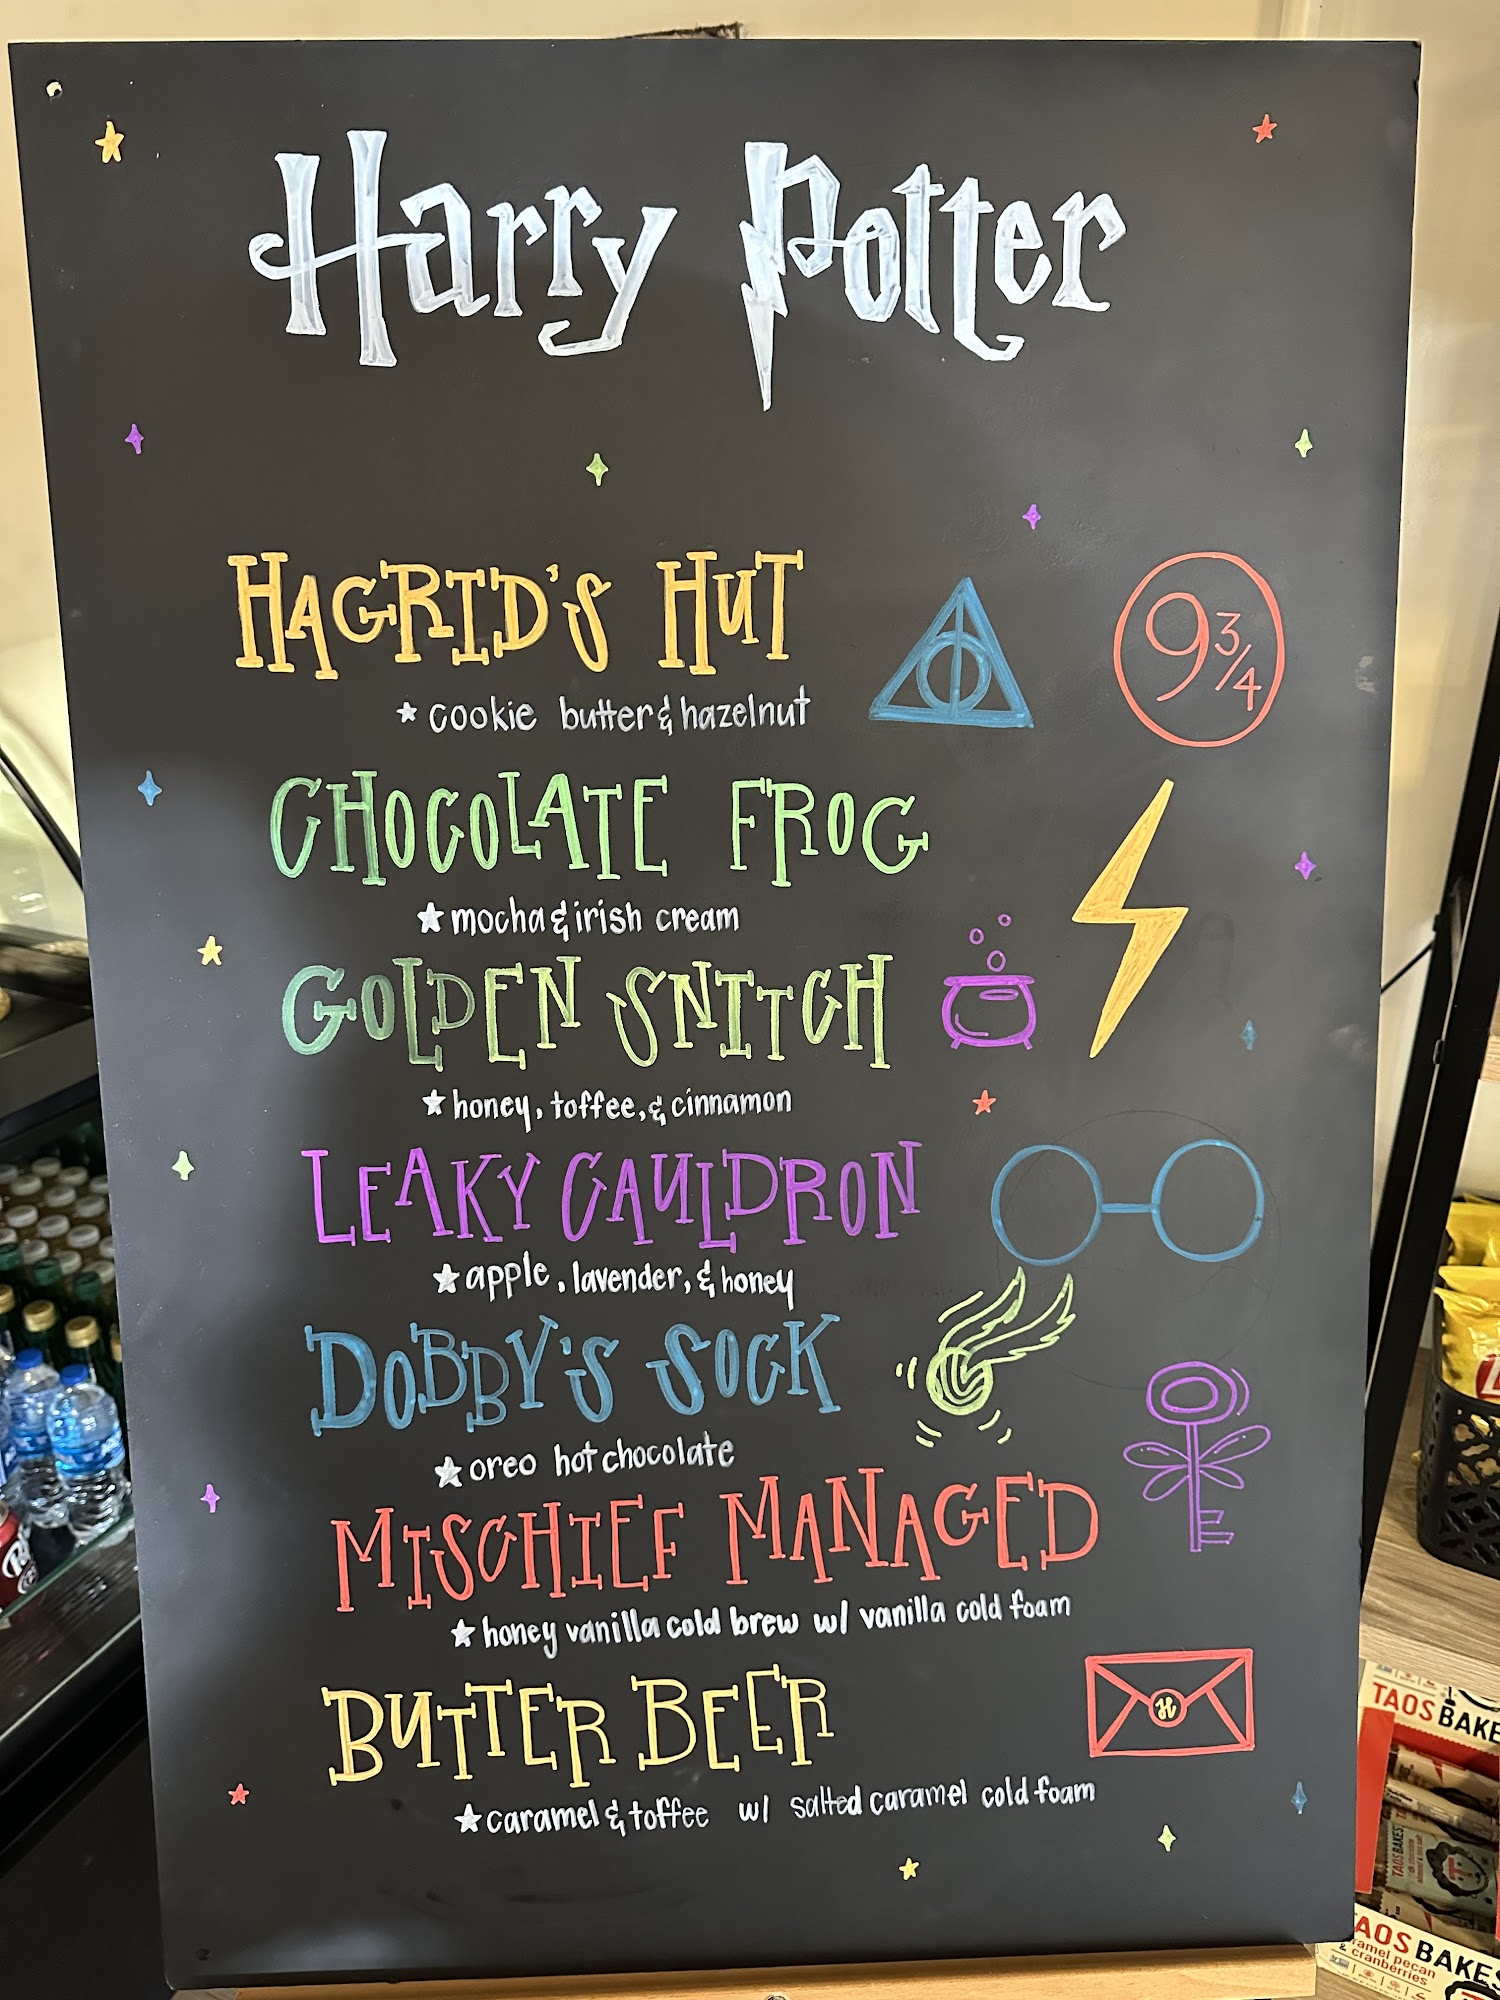 Harry Potter
HAGRID'S HUT
cookie butter & hazelnut
9 3/4
CHOCOLATE FROG
mocha & irish cream
GOLDEN SNITCH
honey, toffee, & cinnamon
LEAKY CAULDRON
apple, lavender, & honey
DOBBY'S SOCK
oreo hot chocolate
MISCHIEF MANAGED
honey vanilla cold brew w/ vanilla cold foam
BUTTER BEER
H
caramel & toffee w/ salted caramel cold foam
TAOS BAKE
TAOS BAKES
AOS BAKES
ramel pecan
& cranberries